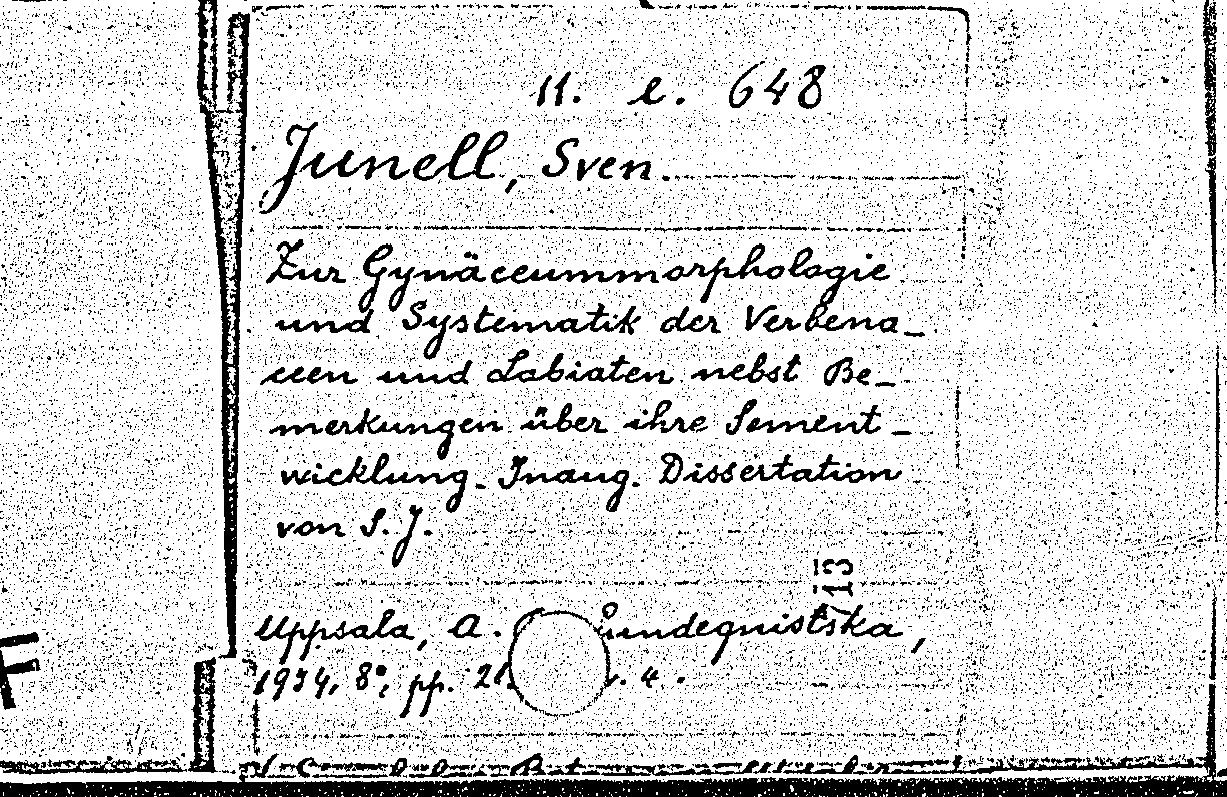 11. e. 648
Junell, Sven.
Zur Gynäceummorphologie
und Systematik der Verbena_
ceen und Labiaten nebst Be_
merkungen über ihre Sement_
wicklung. Inaug. Dissertation
von S. J.
13
Uppsala, A.
1934, 8°, pp. 4.
F